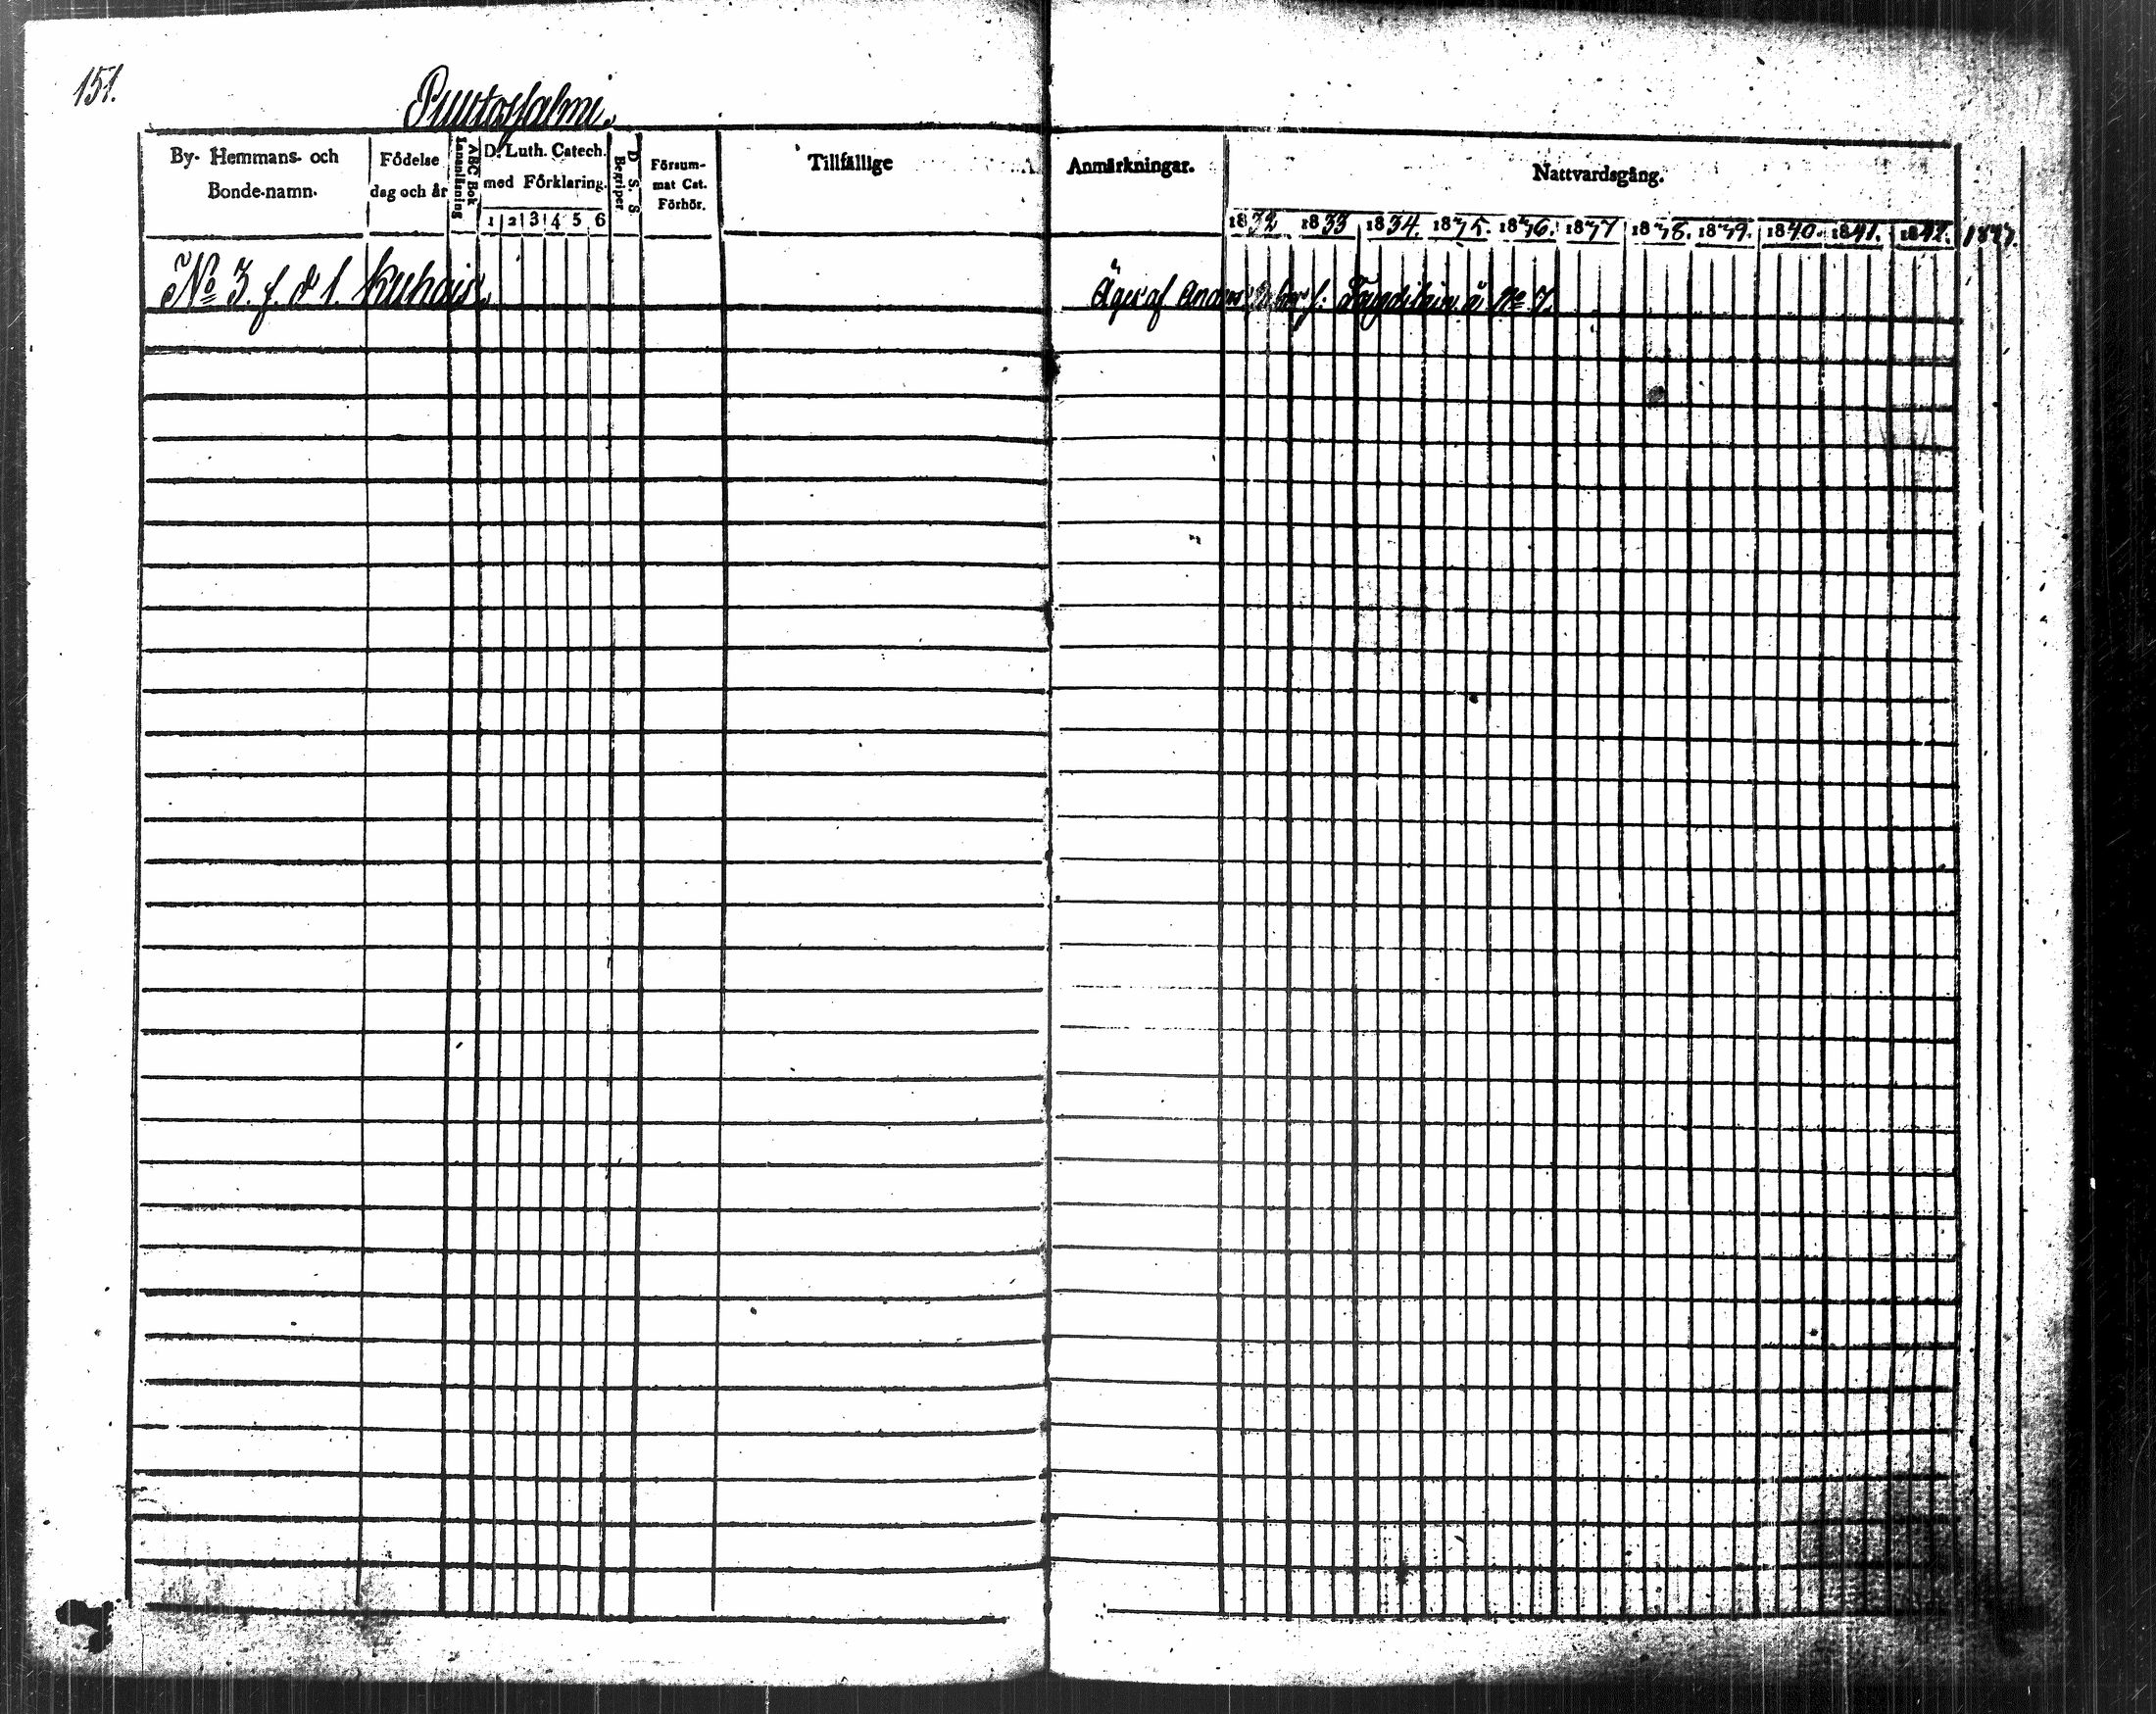 151.
Puutosjalmi.
By- Hemmans- och Bonde-namn.
Födelse dag och år
ABC Bok Innanläsning
D. Luth. Catech. med Förklaring.
1 2 3 4 5 6
D. S. S. Begriper
Försum- mat Cat. Förhör.
Tillfällige
Anmärkningar.
Nattvardsgång.
1832 1833 1834. 1835. 1836. 1837 1838. 1839. 1840. 1841. 1842. 1843.
No 3. f. d 1.
Äges af
å No 7.